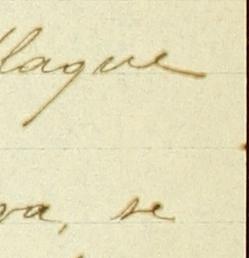 llaque
va, se